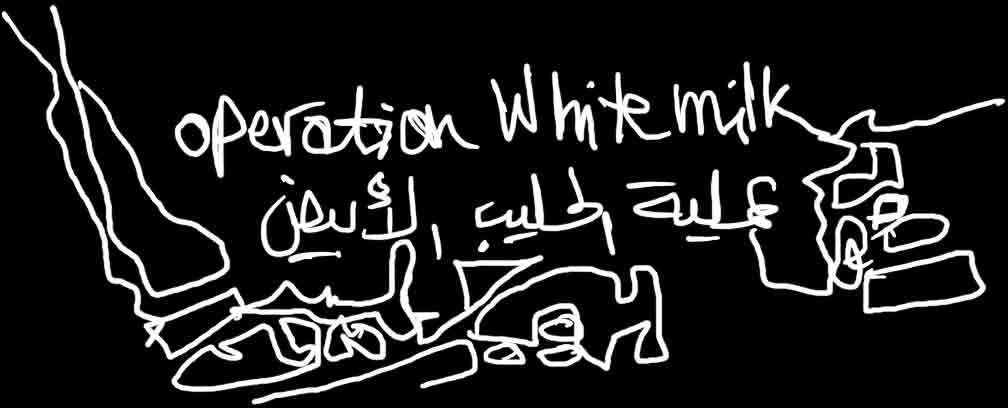 operation White milk
عملية الحليب الأبيض